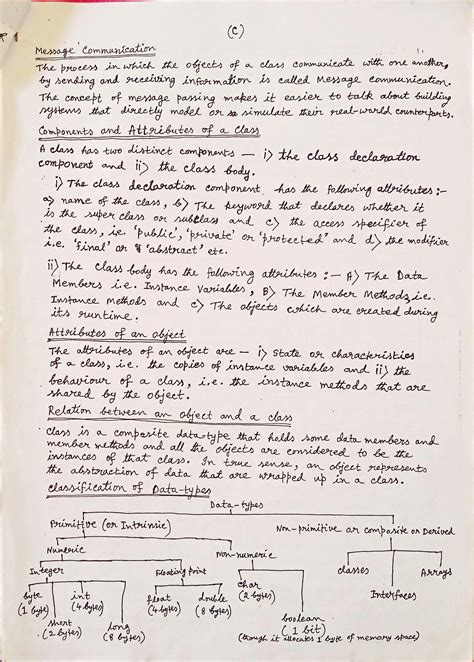 (C)
Message Communication
The process in which the objects of a class communicate with one another,
by sending and receiving information is called Message communication.
The concept of message passing makes it easier to talk about building
systems that directly model or simulate their real-world counterparts.
Components and Attributes of a Class
A class has two distinct components — i) the class declaration
component and ii) the class body.
i) The class declaration component has the following attributes:-
a) name of the class, b) The keyword that declares whether it
is the super class or subclass and c) the access specifier of
the class, i.e. 'public', 'private' or 'protected' and d) the modifier
i.e. 'final' or 'abstract' etc.
ii) The class body has the following attributes :- A) The Data
Members i.e. Instance Variables, B) The Member Methods, i.e.
Instance Methods and C) The objects which are created during
its runtime.
Attributes of an Object
The attributes of an object are — i) State or characteristics
of a class, i.e. the copies of instance variables and ii) the
behaviour of a class, i.e. the instance methods that are
shared by the object.
Relation between an Object and a class
Class is a composite data-type that holds some data members and
member methods and all the objects are considered to be the
instances of that class. In true sense, an object represents
the abstraction of data that are wrapped up in a class.
Classification of Data-types
Data-types
Primitive (or Intrinsic) Non-primitive or composite or Derived
Numeric Non-numeric classes Interfaces Arrays
Integer Floating point char (2 bytes) boolean (1 bit)
byte (1 byte) short (2 bytes) int (4 bytes) long (8 bytes) float (4 bytes) double (8 bytes)
(though it allocates 1 byte of memory space)